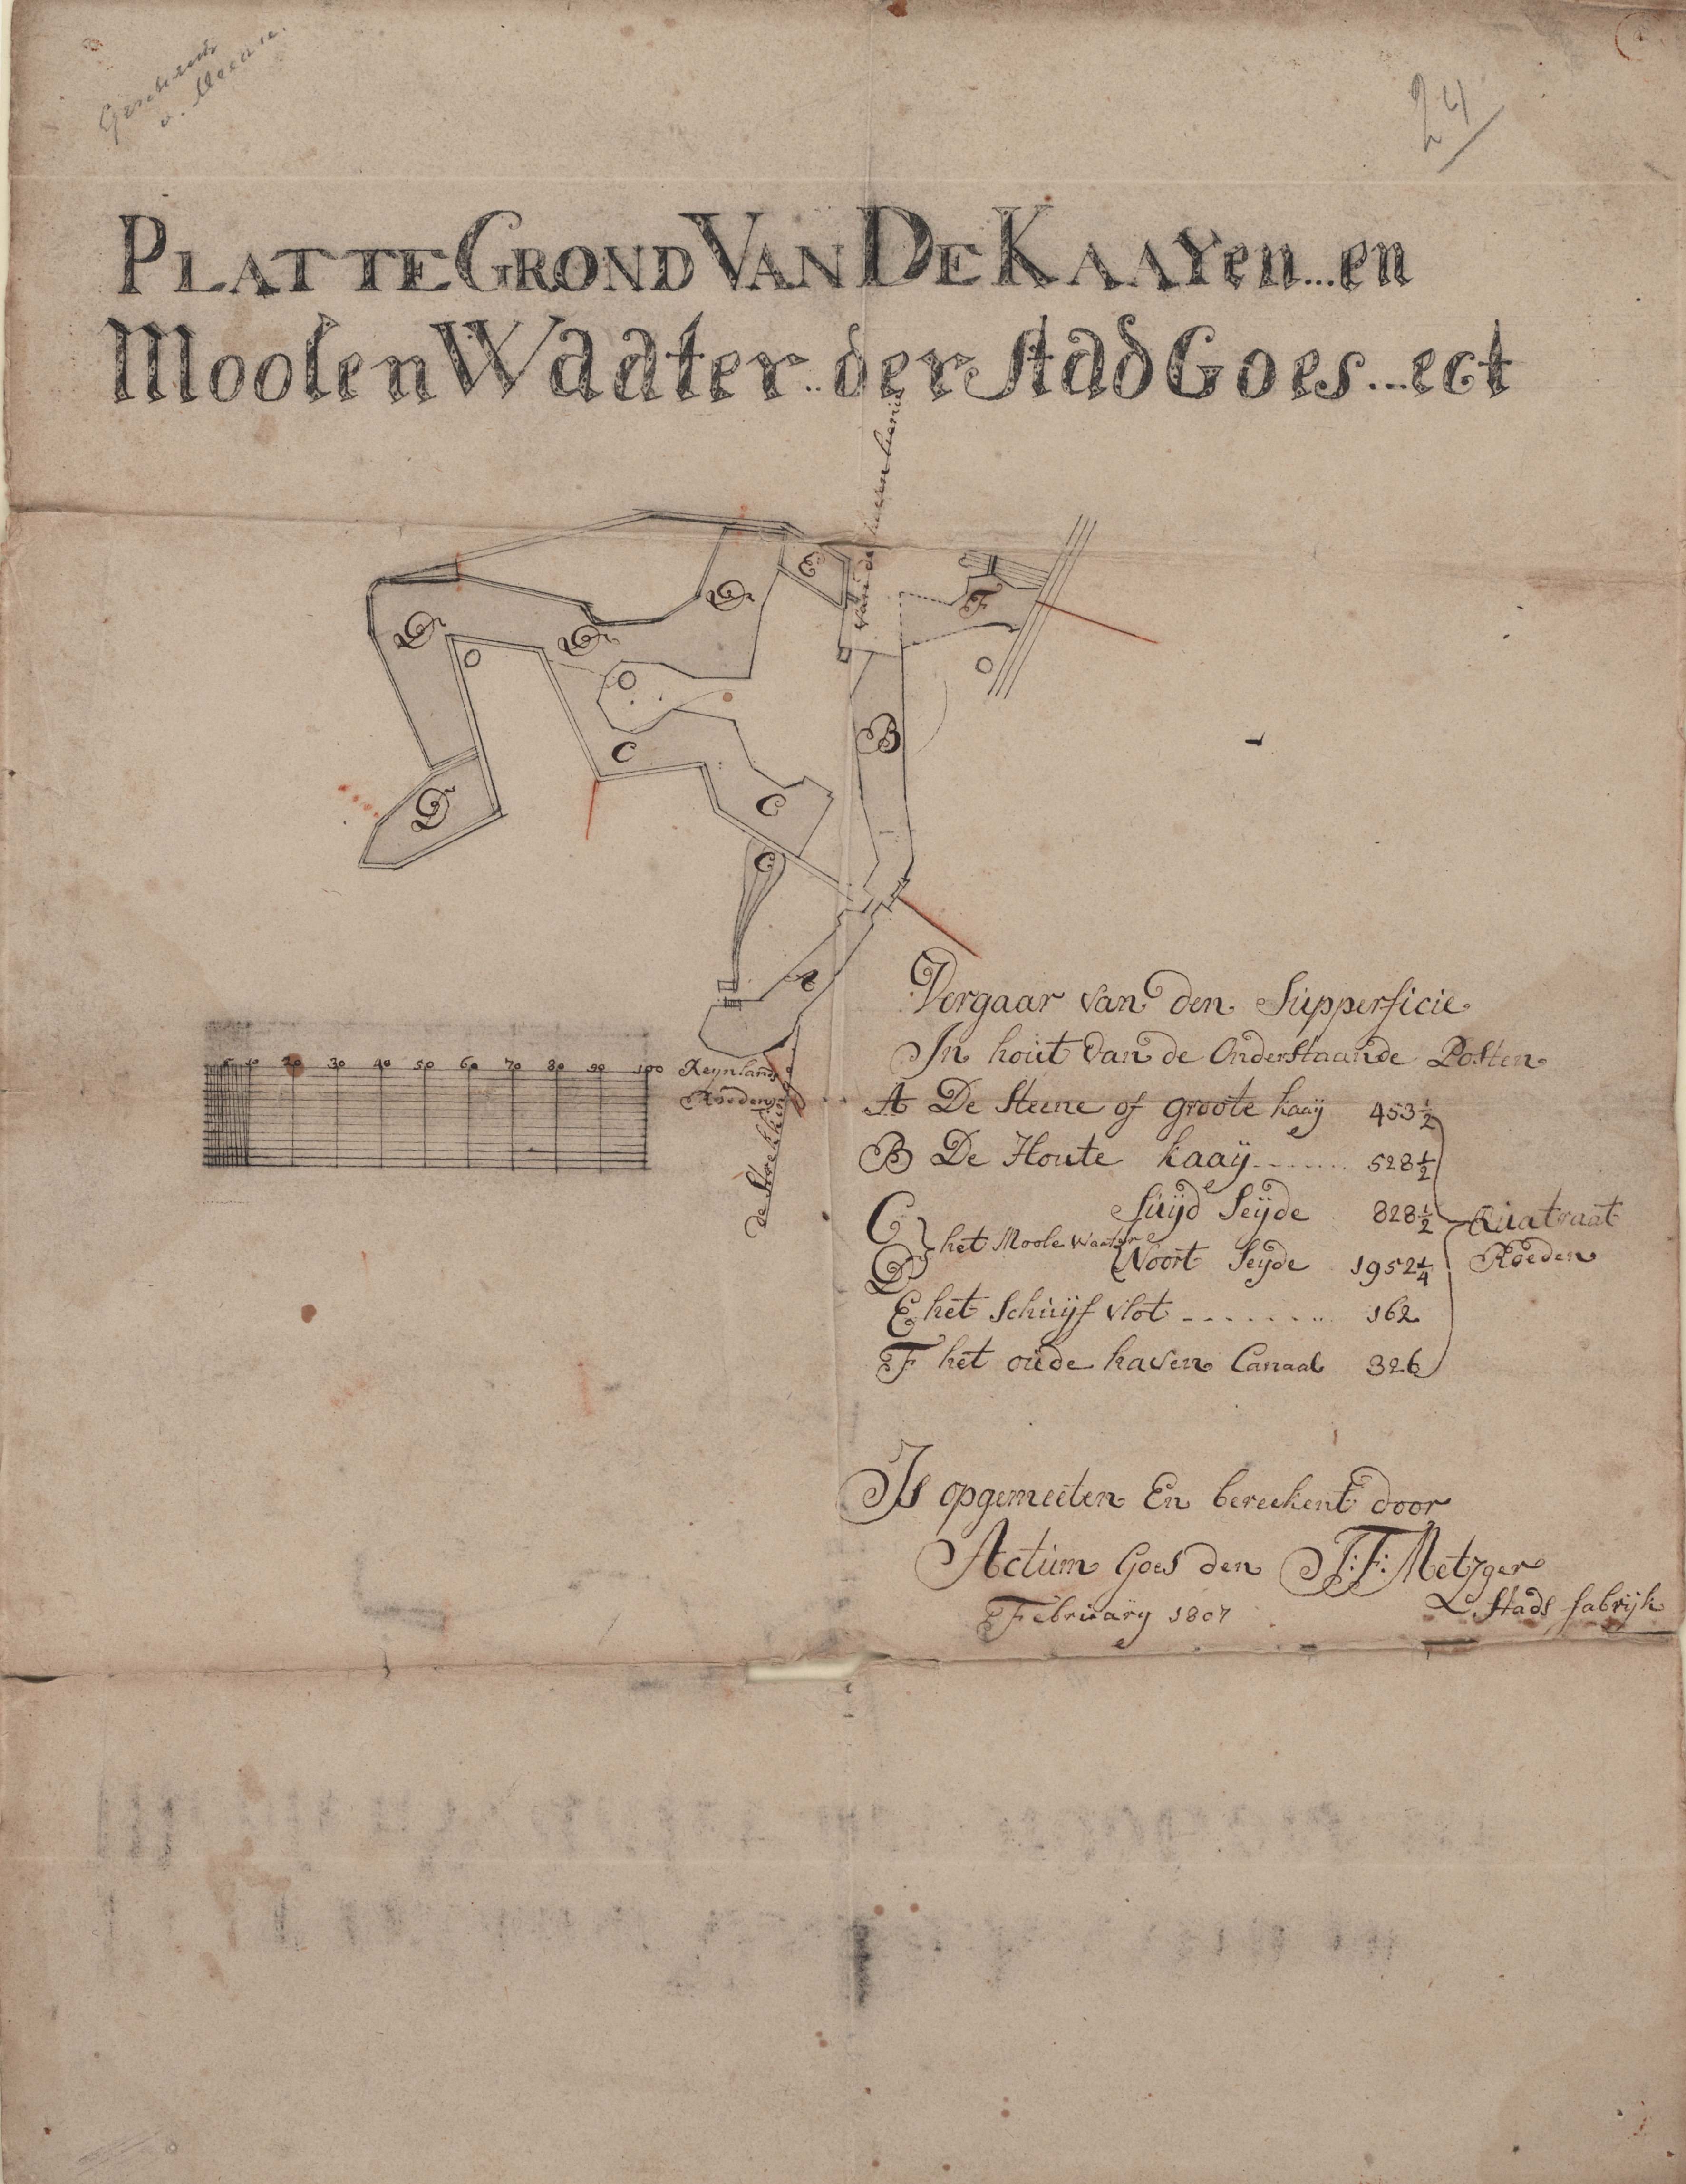 24
PLATTE GROND VAN DE KAAYen...en
Moolen Waater..der Stad Goes...ect
van de heeren
D
D
D
E
F
B
C
C
D
C
A
5 10 20 30 40 50 60 70 80 90 100 Reynlands
Roeden
de Strekking
Vergaar van den Supperficie
In hout van de Onderstaande Posten
A De Steene of groote kaaij 453 1/2
B De Houte kaaÿ....... 528 1/2
C } het Moole Waater { Suÿd Seÿde 828 1/2
D } { Noort Seÿde 1952 1/4
Quatraat
Roeden
E het Schuÿf vlot ....... 162
F het oude haven Canaal 326
Is opgemeeten En bereekent door
Actum Goes den J:F: Metzger
Februarÿ 1807 Stads fabrijk